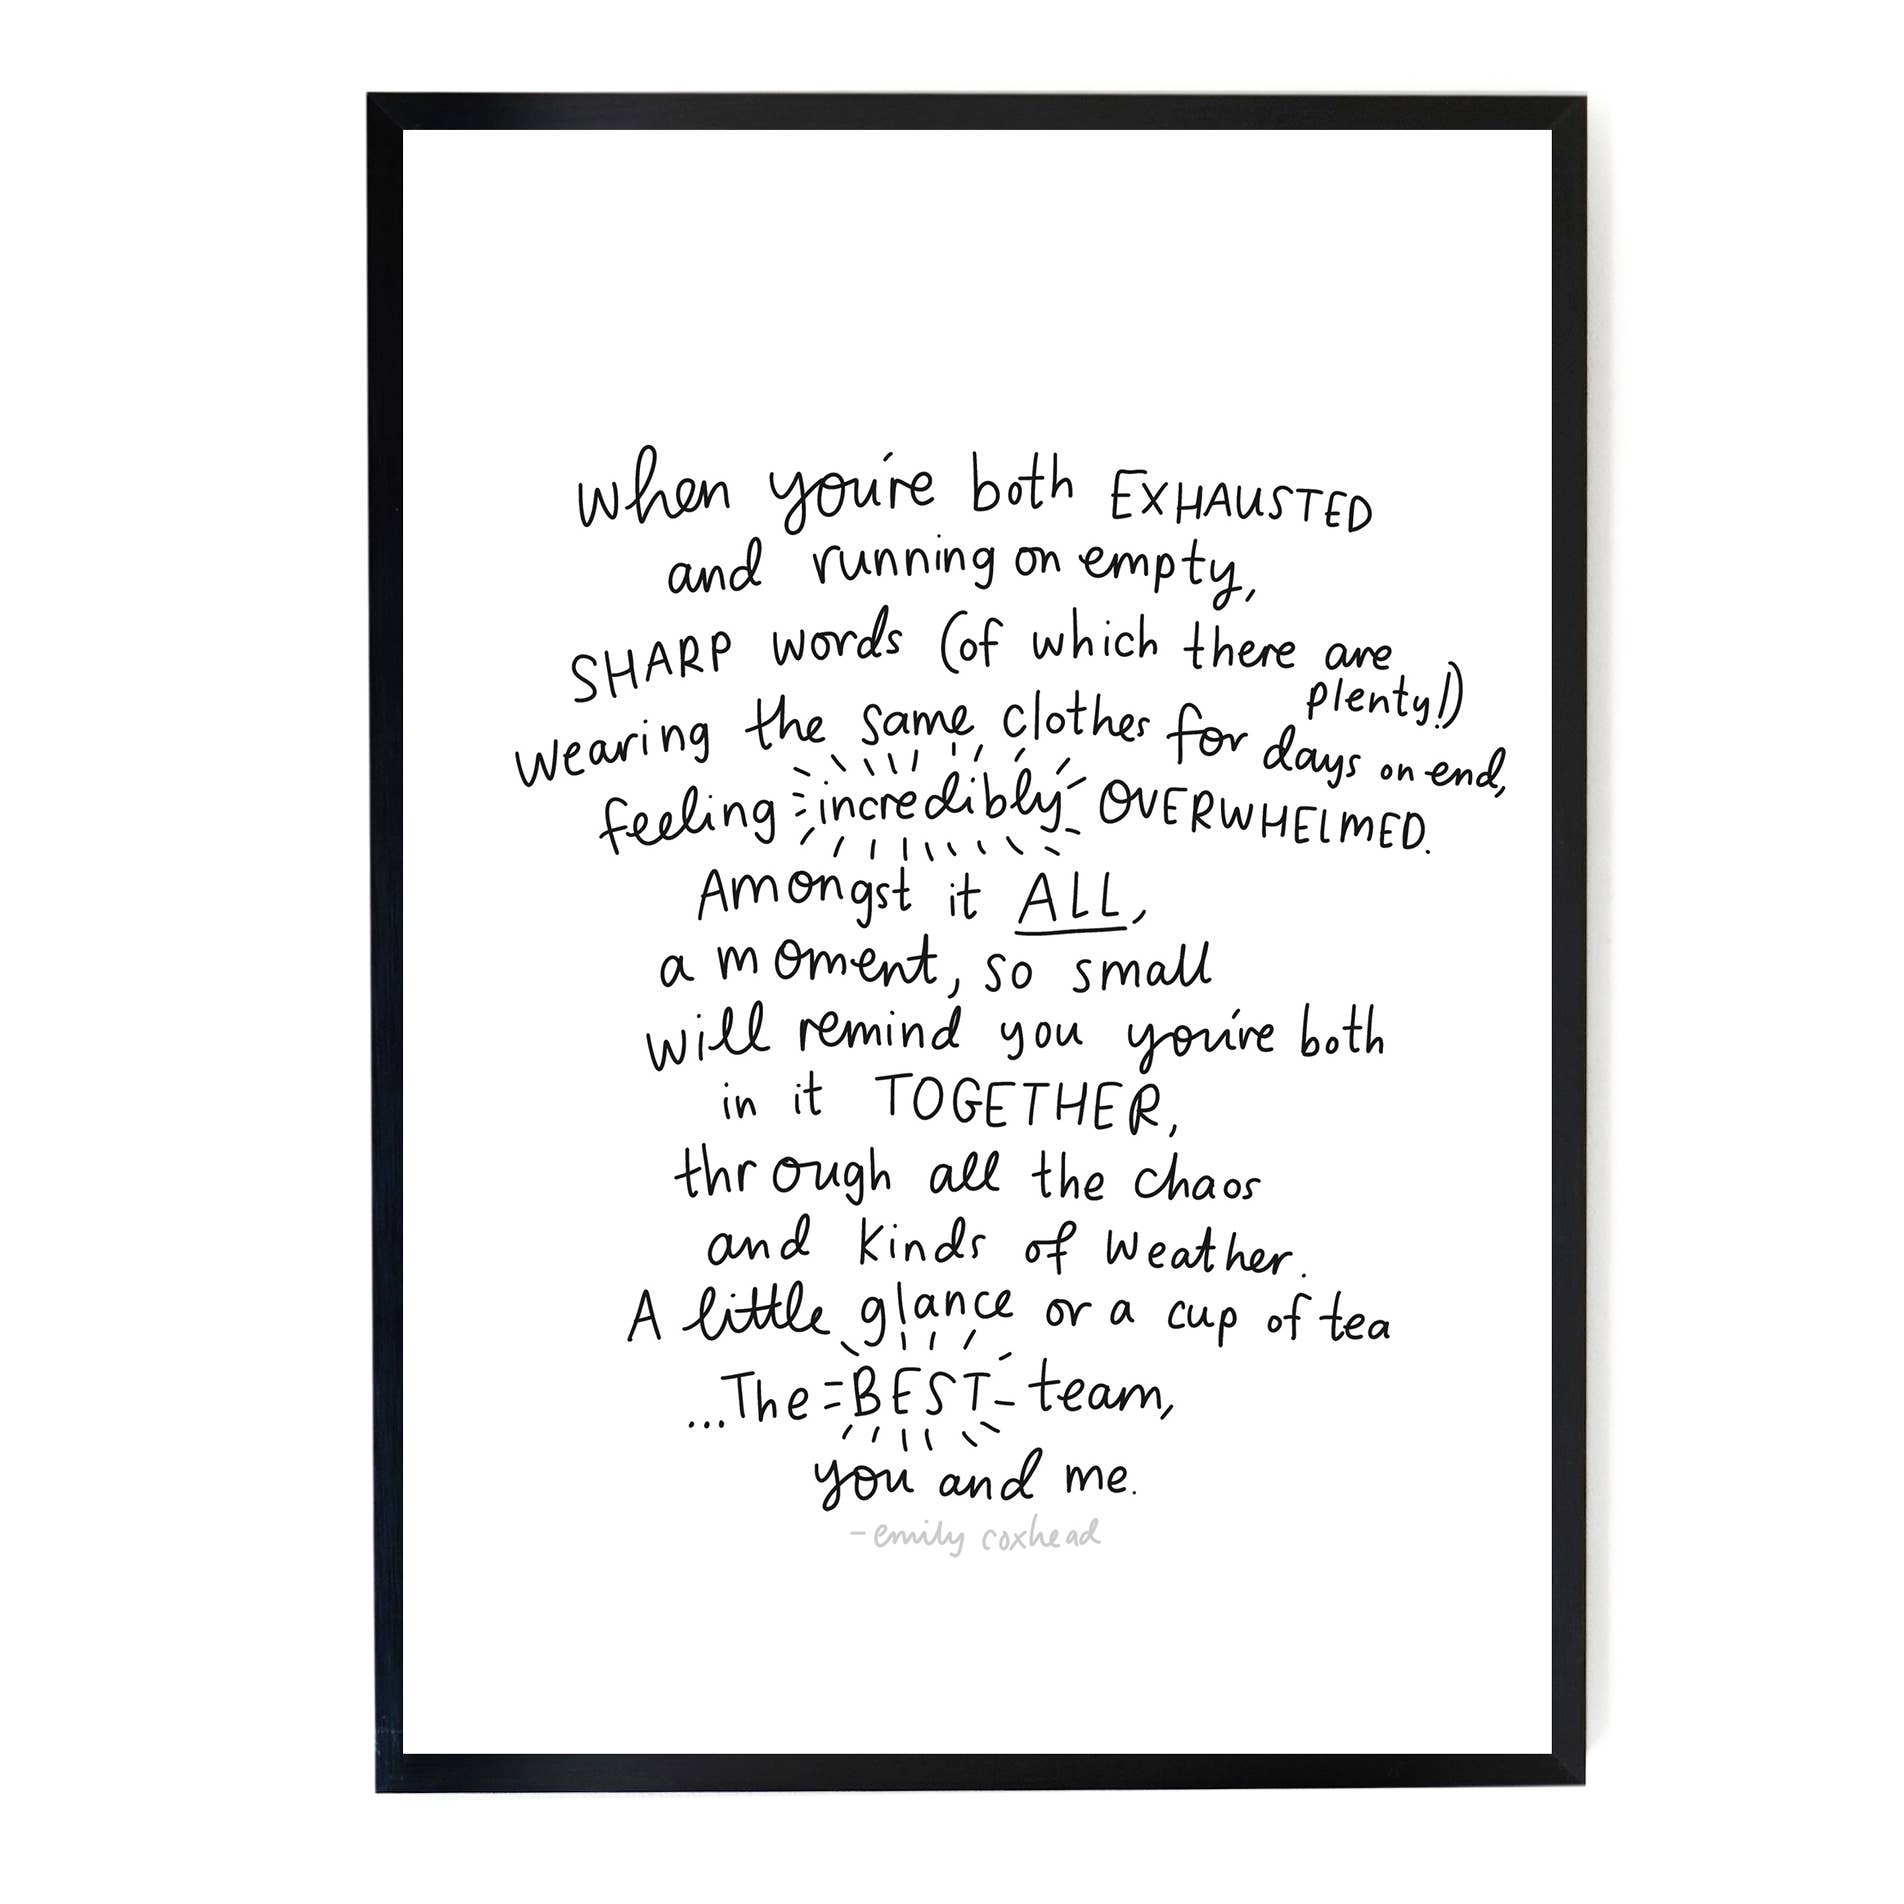 When you're both EXHAUSTED
and running on empty,
SHARP words (of which there are
plenty!)
wearing the same clothes for days on end,
feeling incredibly OVERWHELMED.
Amongst it ALL,
a moment, so small
will remind you you're both
in it TOGETHER,
through all the chaos
and kinds of weather.
A little glance or a cup of tea
...The BEST team,
you and me.
- emily coxhead